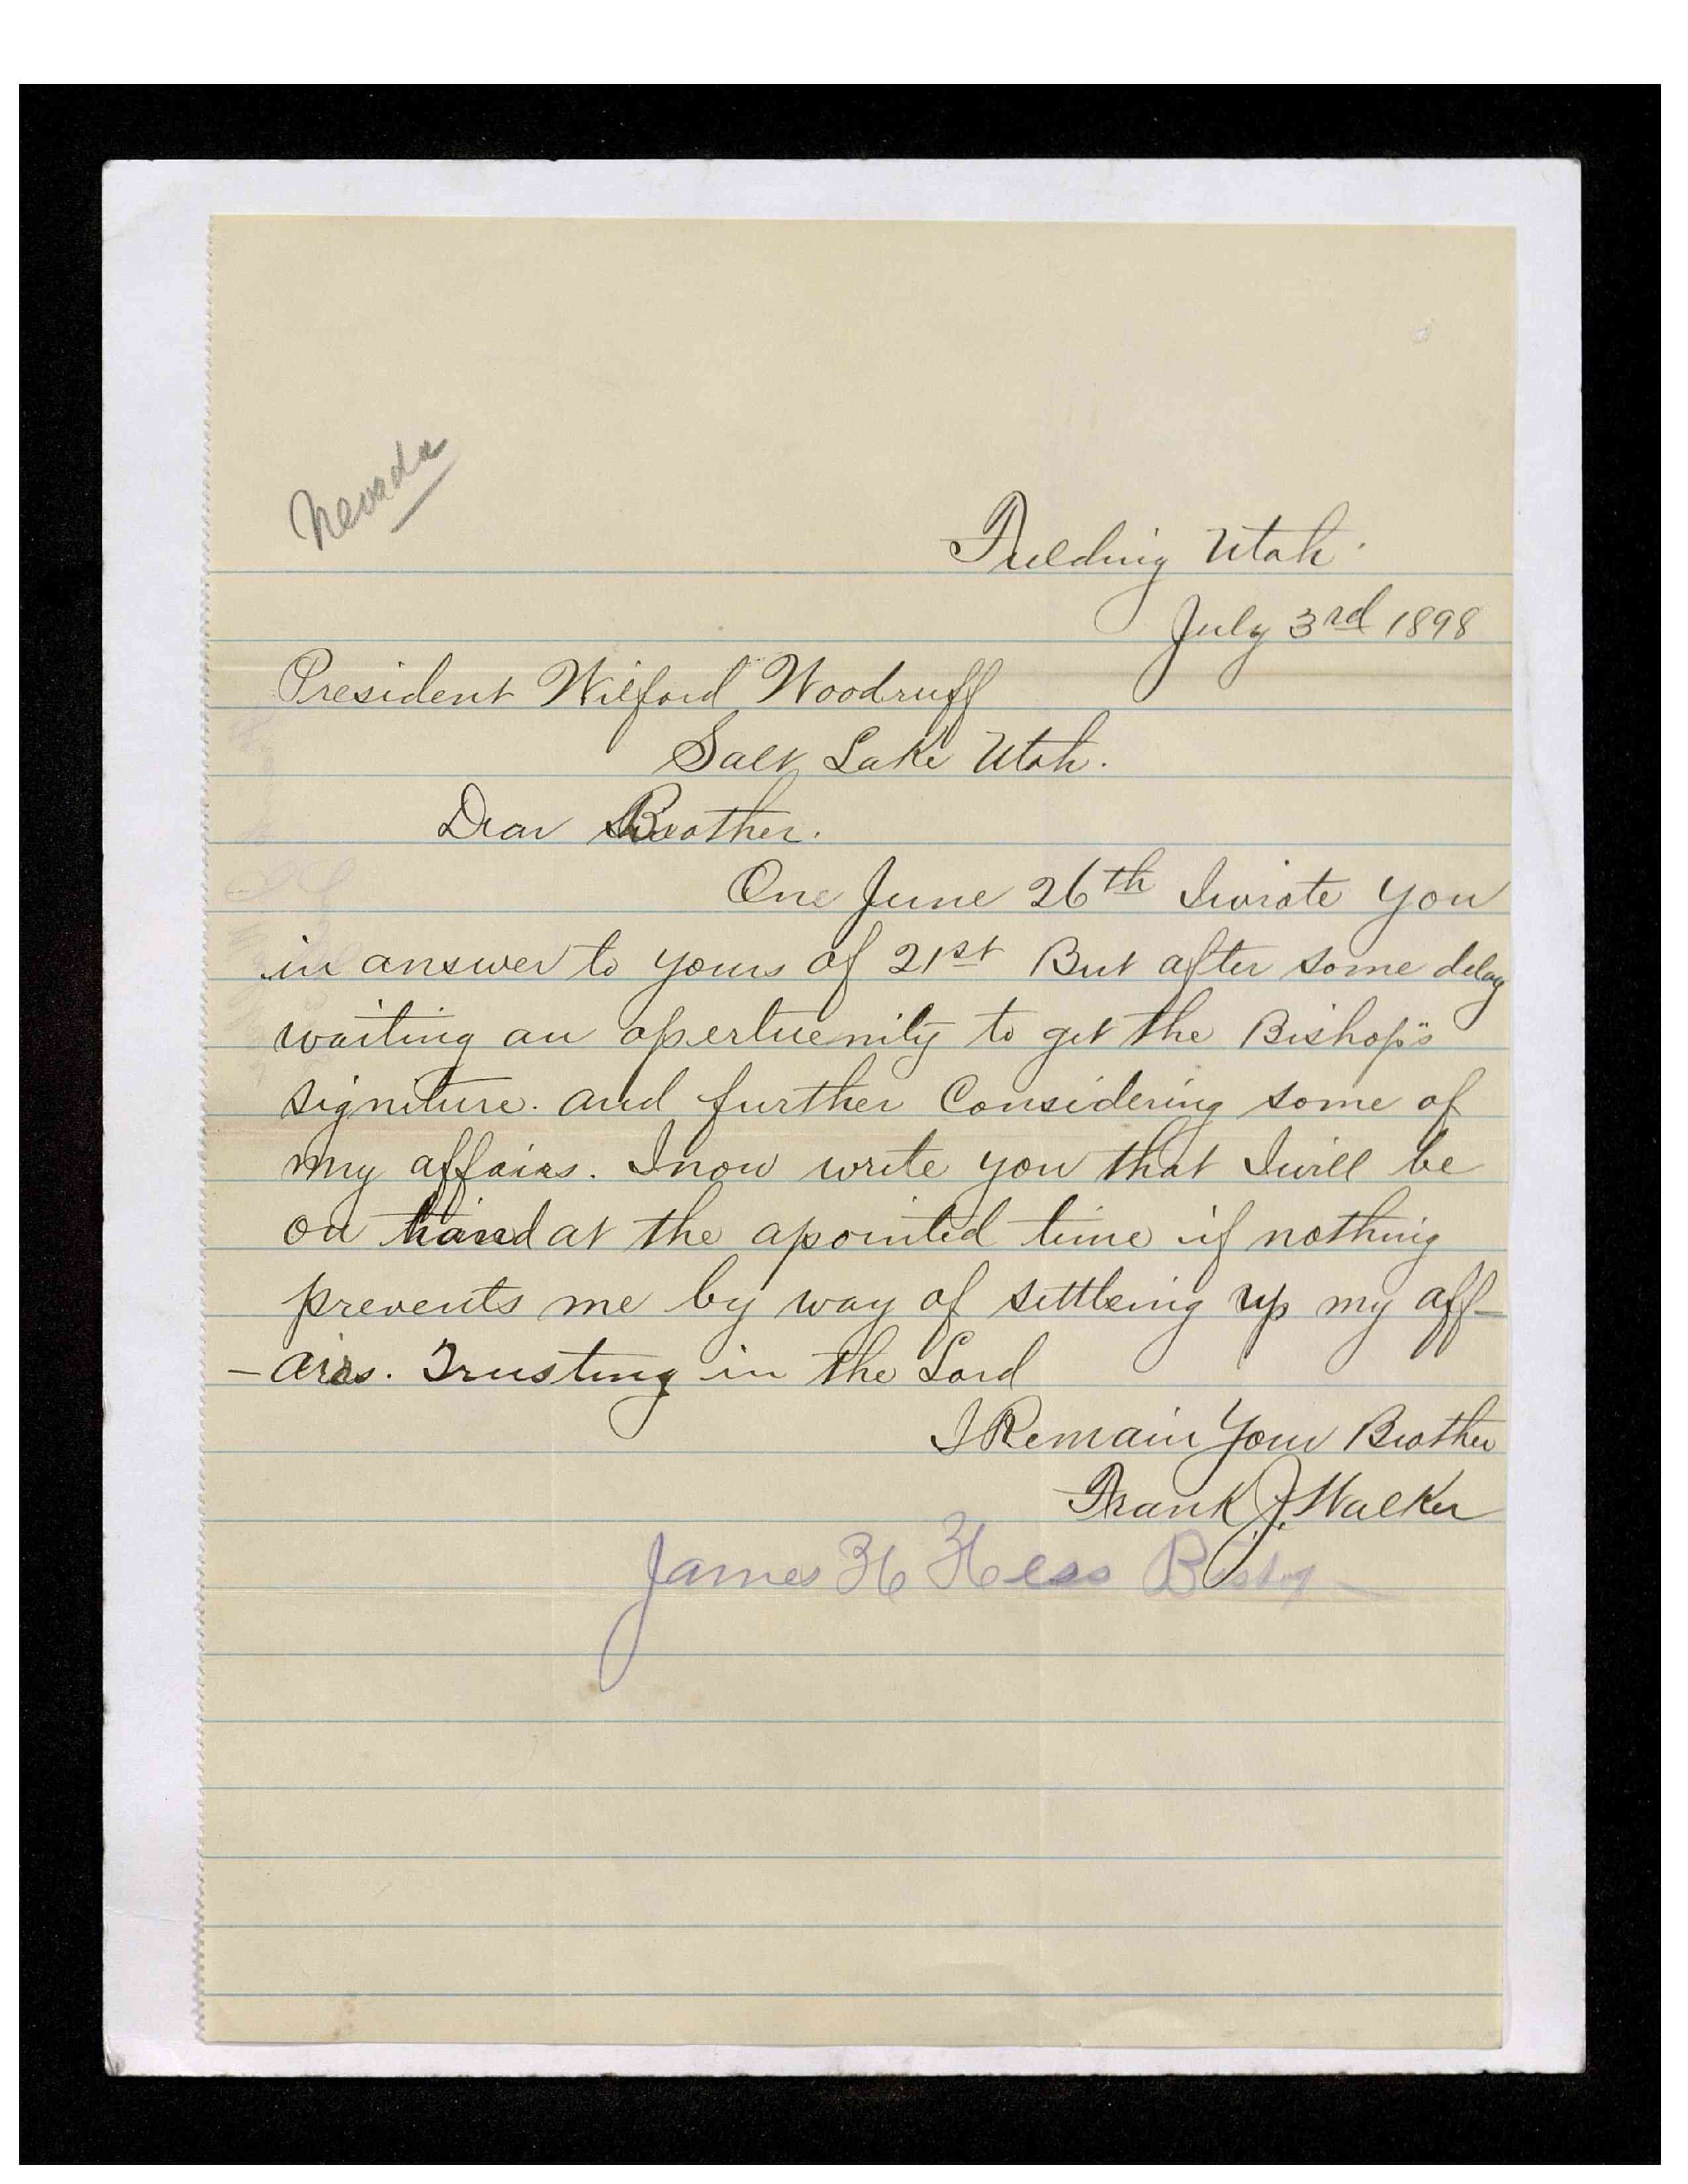 Nevada
Fielding Utah.
July 3rd 1898
President Wilford Woodruff
Salt Lake Utah.
Dear Brother.
One June 26th I wrote you
in answer to yours of 21st But after some delay
waiting an opertuenity to get the Bishop's
signiture. and further Considering some of
my affairs. I now write you that I will be
on hand at the apointed time if nothing
prevents me by way of settleing up my aff-
-airs. Trusting in the Lord
I Remain Your Brother
Frank J. Walker
James H Hess Bishop